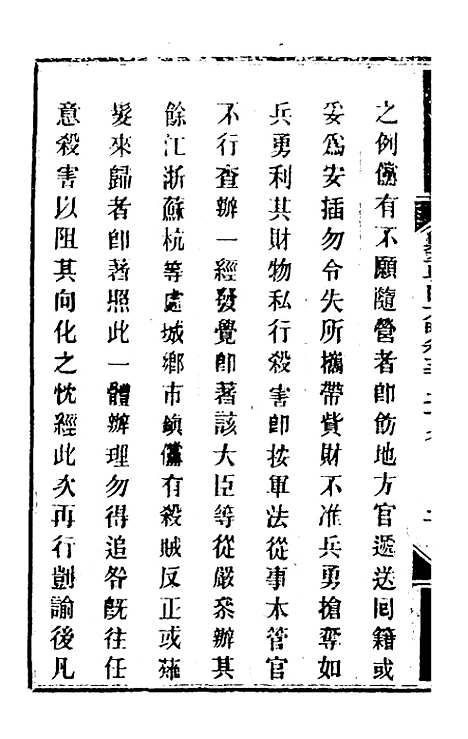 之例儻有不願隨營者即飭地方官遞送回籍或
妥爲安插勿令失所攜帶貲財不准兵勇搶奪如
兵勇利其財物私行殺害即按軍法從事本管官
不行查辦一經發覺即著該大臣等從嚴叅辦其
餘江浙蘇杭等處城鄉市鎮儻有殺賊反正或薙
髮來歸者即著照此一體辦理勿得追咎旣往任
意殺害以阻其向化之忱經此次再行剴諭後凡